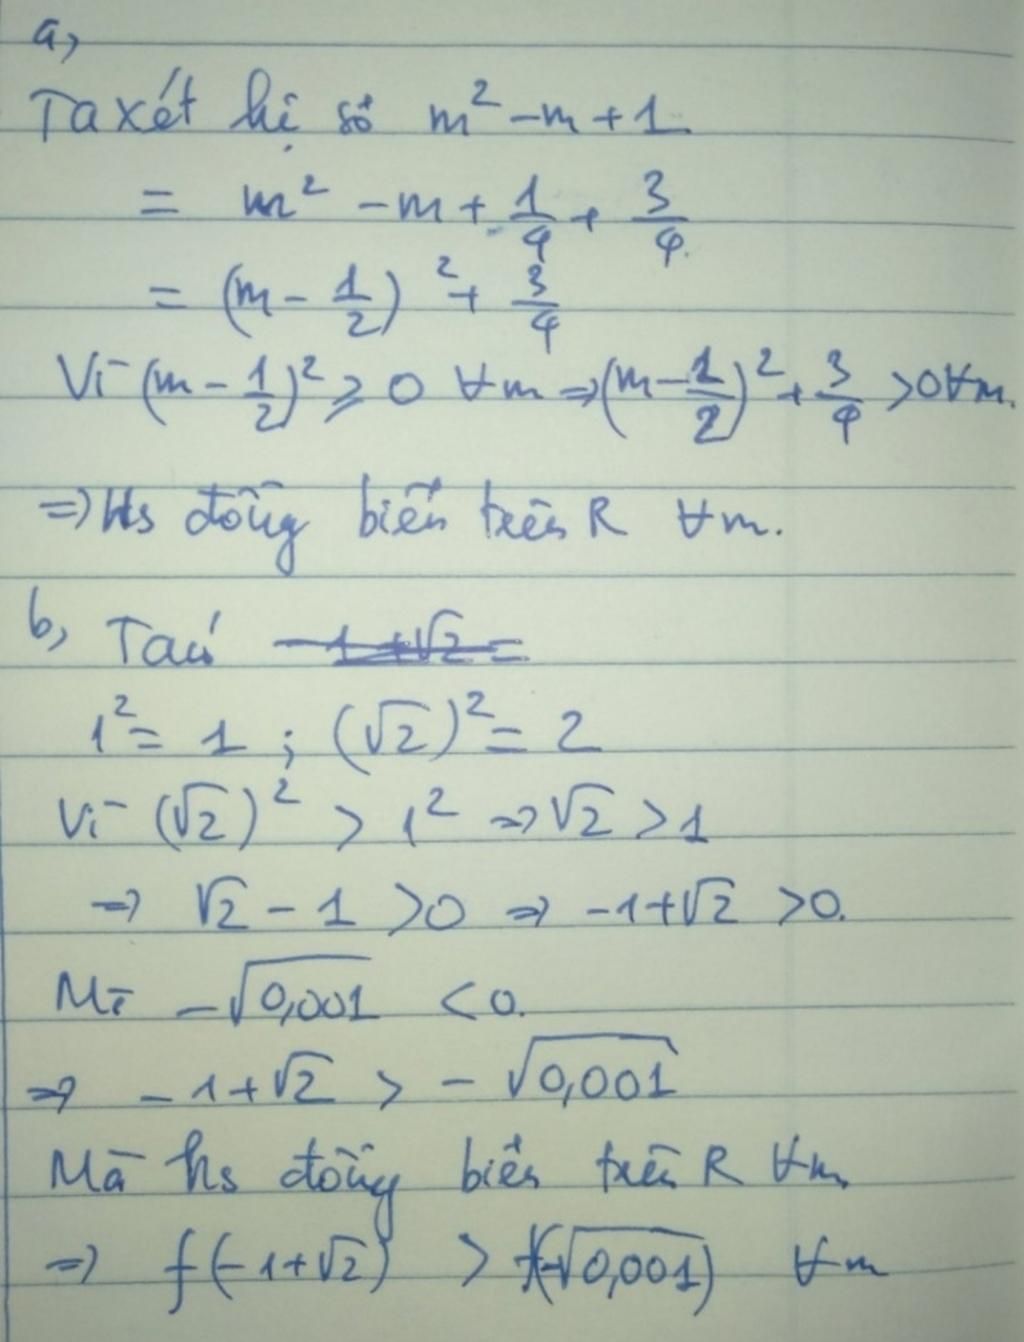 a,
Ta xét hệ số m² - m + 1
= m² - m + 1/4 + 3/4
= (m - 1/2)² + 3/4
Vì (m - 1/2)² ≥ 0 ∀m ⇒ (m - 1/2)² + 3/4 > 0 ∀m.
⇒ Hs đồng biến trên R ∀m.
b, Ta có
1² = 1 ; (√2)² = 2
Vì (√2)² > 1² ⇒ √2 > 1
⇒ √2 - 1 > 0 ⇒ -1 + √2 > 0.
Mà -√0,001 < 0.
⇒ -1 + √2 > -√0,001
Mà hs đồng biến trên R ∀m
⇒ f(-1 + √2) > f(-√0,001) ∀m